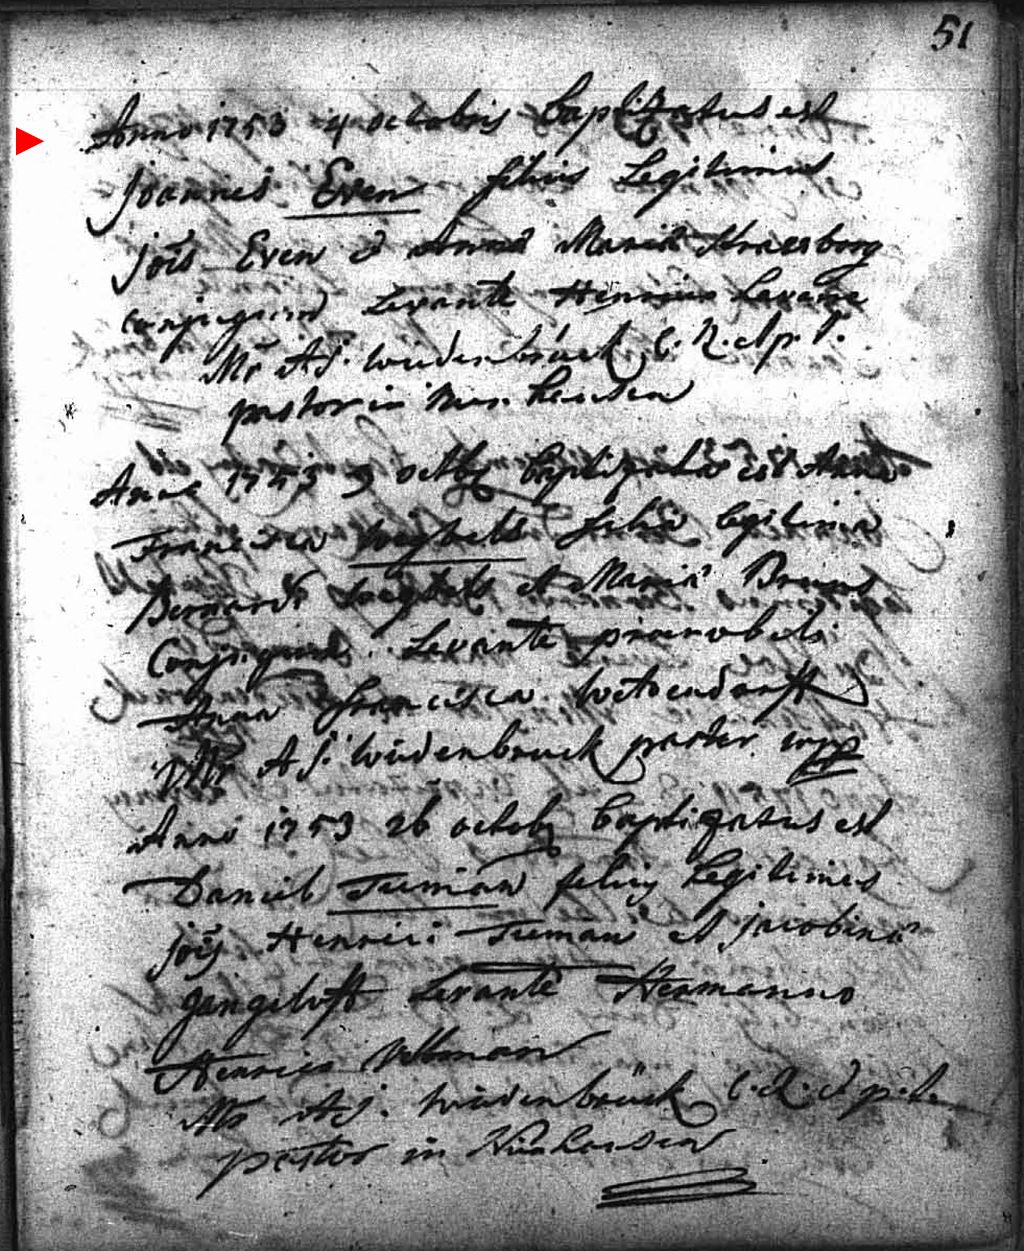 51
Anno 1753 4 octobris baptizatus est
Joannes Even filius Legitimus
joēs Even & Annae Mariae Straesborg
conjugum Levante Henrico
Mr A J. Wiedenbrück C. R. & p. t.
pastor in
Anno 1753 9 octbr baptizata est Anna
Francisca filia legitima
Bernardi et Maria Bruns
Conjugum Levante praenobili
Anna Francisca
Mr A J. Wiedenbruck pastor mpp
Anno 1753 26 octob baptizatus est
Daniel Tieman filius Legitimus
joēs Henrici Tieman et jacobina
Levante Hermanno
Henrico Veltman
Mr A J. Wiedenbrück C. R. & p. t.
pastor in